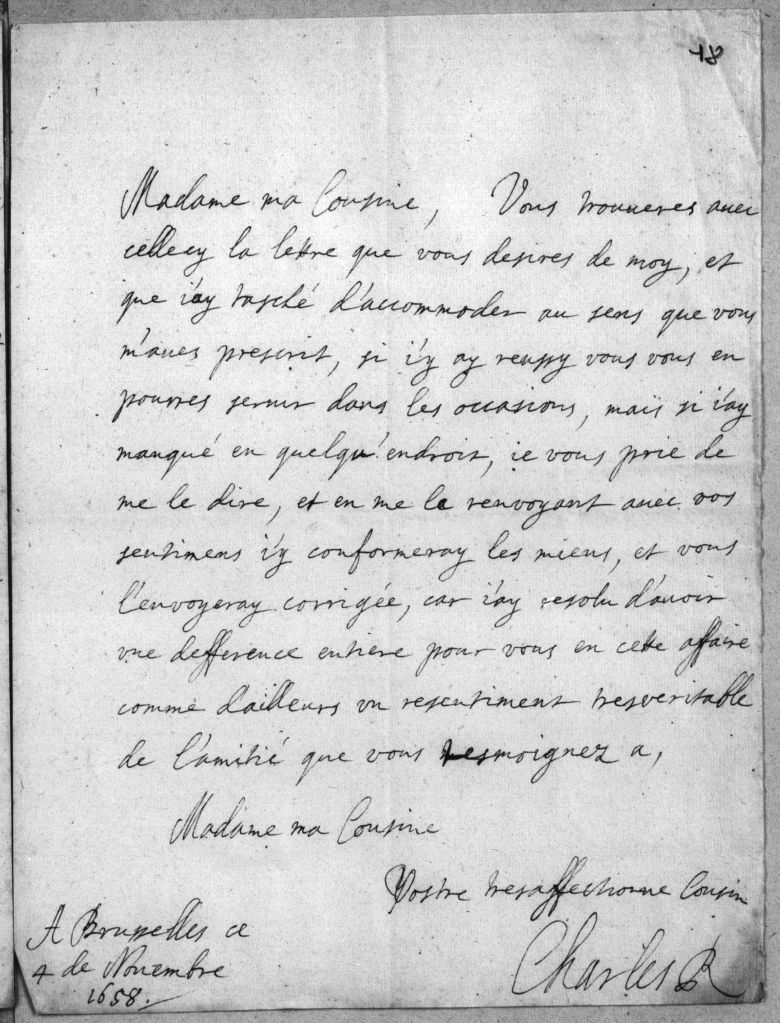 18
Madame ma Cousine, Vous trouueres auec
cellecy la lettre que vous desires de moy, et
que i'ay tasché d'accommoder au sens que vous
m'aues prescrit, si i'y ay reussy vous vous en
pourres seruir dans les occasions, mais si i'ay
manqué en quelqu'endroit, ie vous prie de
me le dire, et en me la renvoyant auec vos
sentimens i'y conformeray les miens, et vous
l'envoyeray corrigée, car i'ay resolu d'auoir
vne defference entiere pour vous en cette affaire
comme d'ailleurs vn resentiment tresveritable
de l'amitié que vous tesmoignez a,
Madame ma Cousine
Vostre tresaffectionne Cousin
Charles R
A Bruxelles ce
4 de Nouembre
1658.